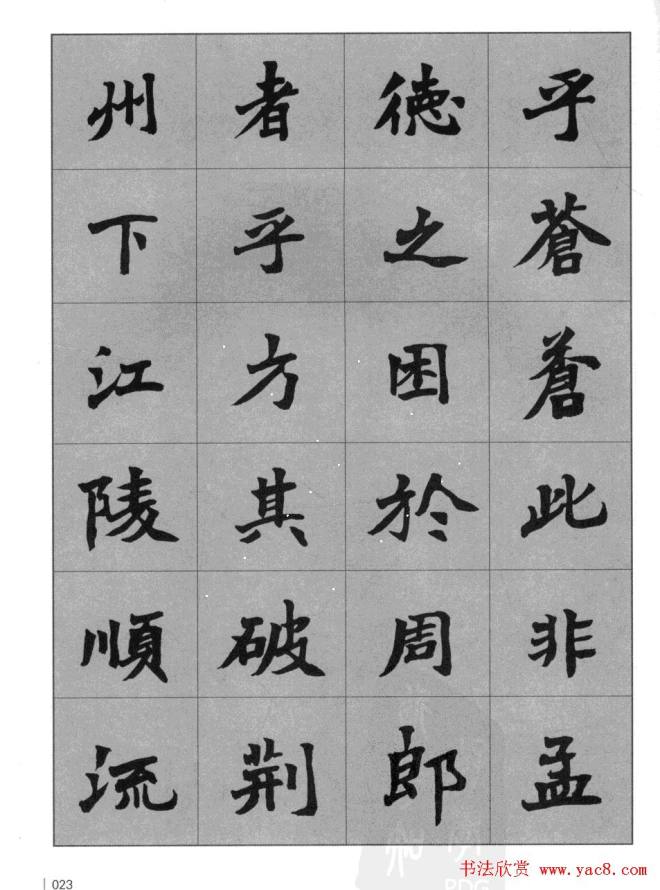 乎蒼蒼此非孟
徳之困於周郎
者乎方其破荆
州下江陵順流
023
书法欣赏 www.yac8.com